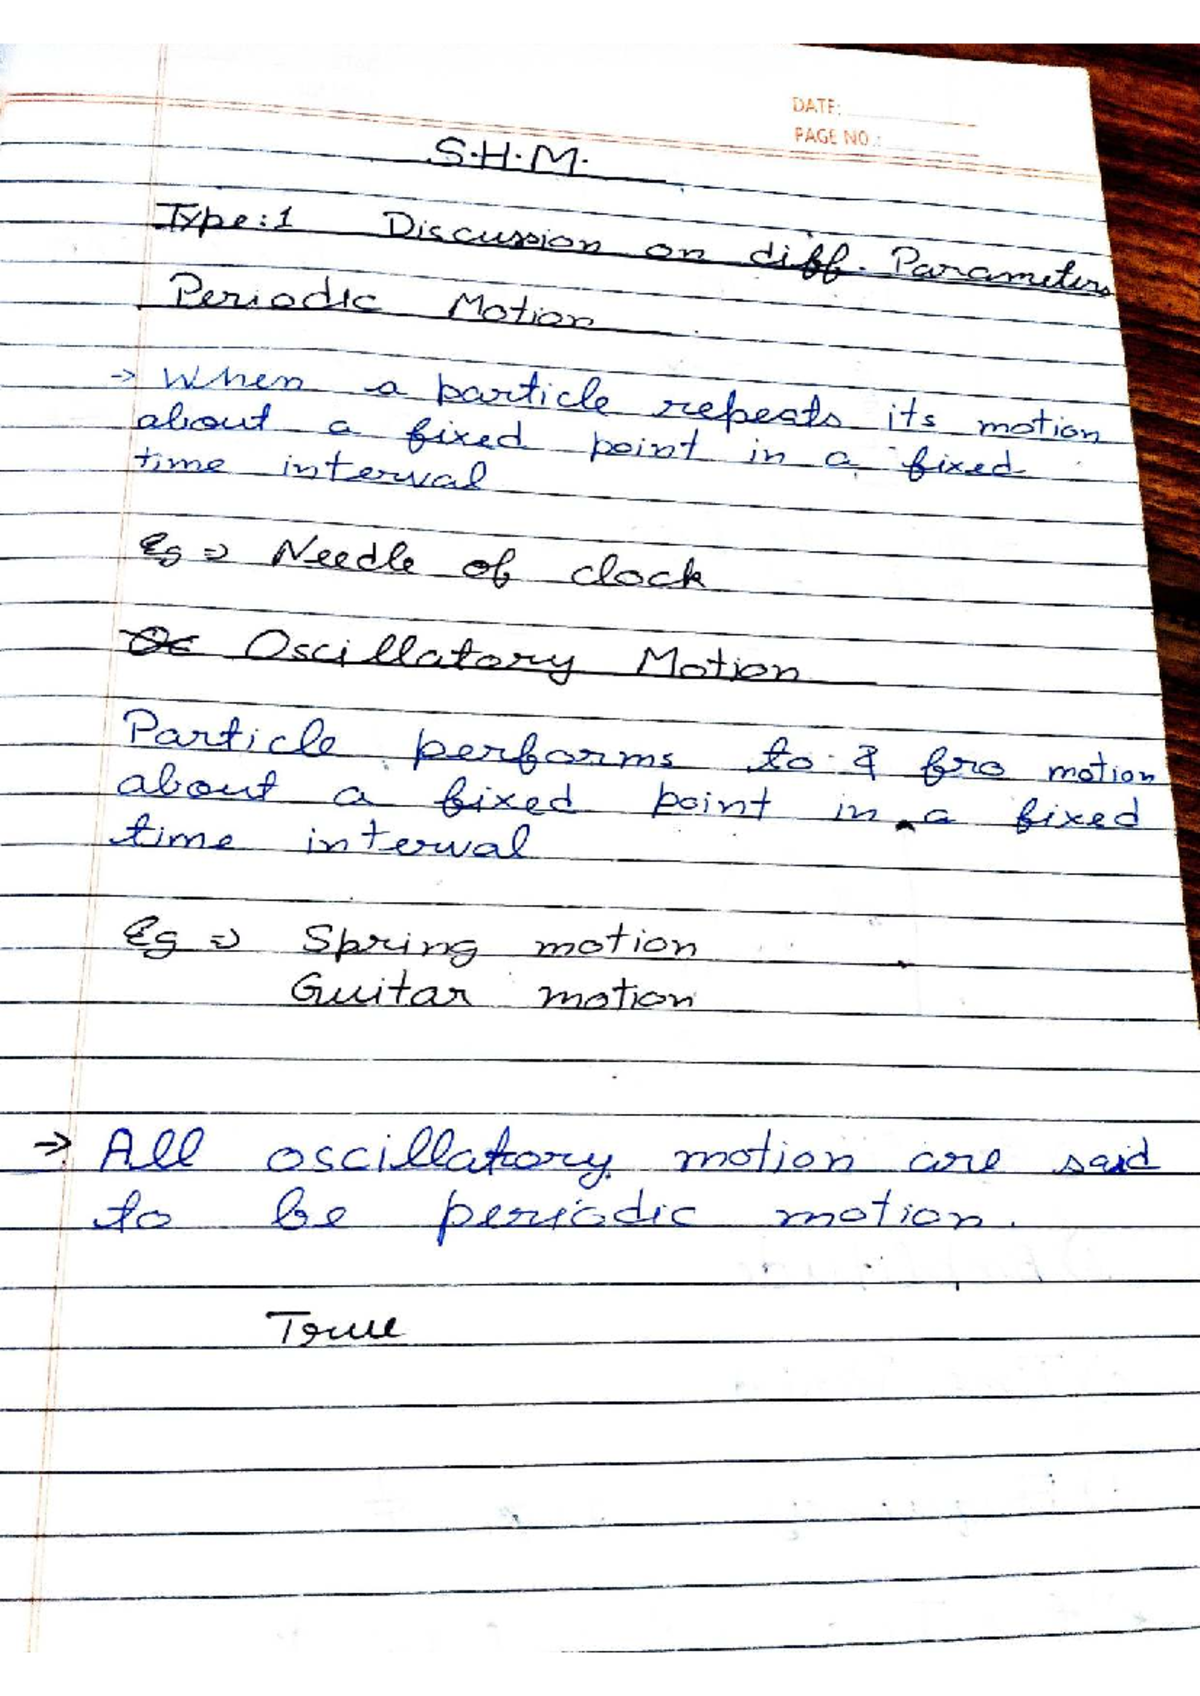 DATE:
PAGE NO.:
S.H.M.
Type:1 Discussion on diff. Parameters
Periodic Motion
→ When a particle repeats its motion
about a fixed point in a fixed
time interval
Eg ⇒ Needle of clock
Oscillatory Motion
Particle performs to & fro motion
about a fixed point in a fixed
time interval
Eg ⇒ Spring motion
Guitar motion
⇒ All oscillatory motion are said
to be periodic motion.
True